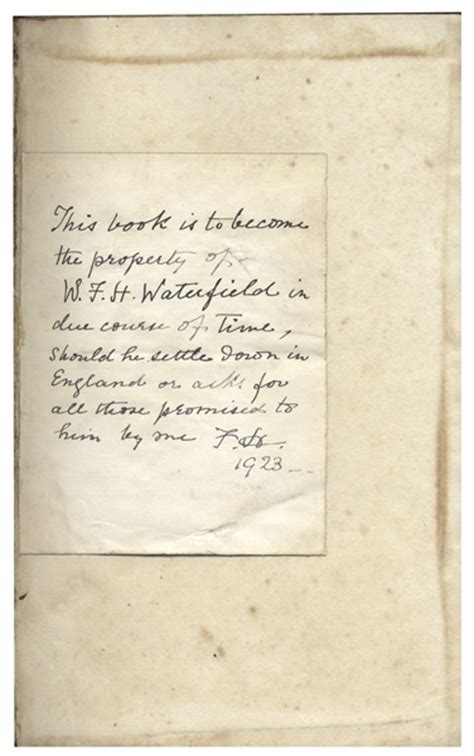 This book is to become
the property of
W. F. H. Waterfield in
due course of Time,
should he settle down in
England or asks for
all those promised to
him by me F. H.
1923